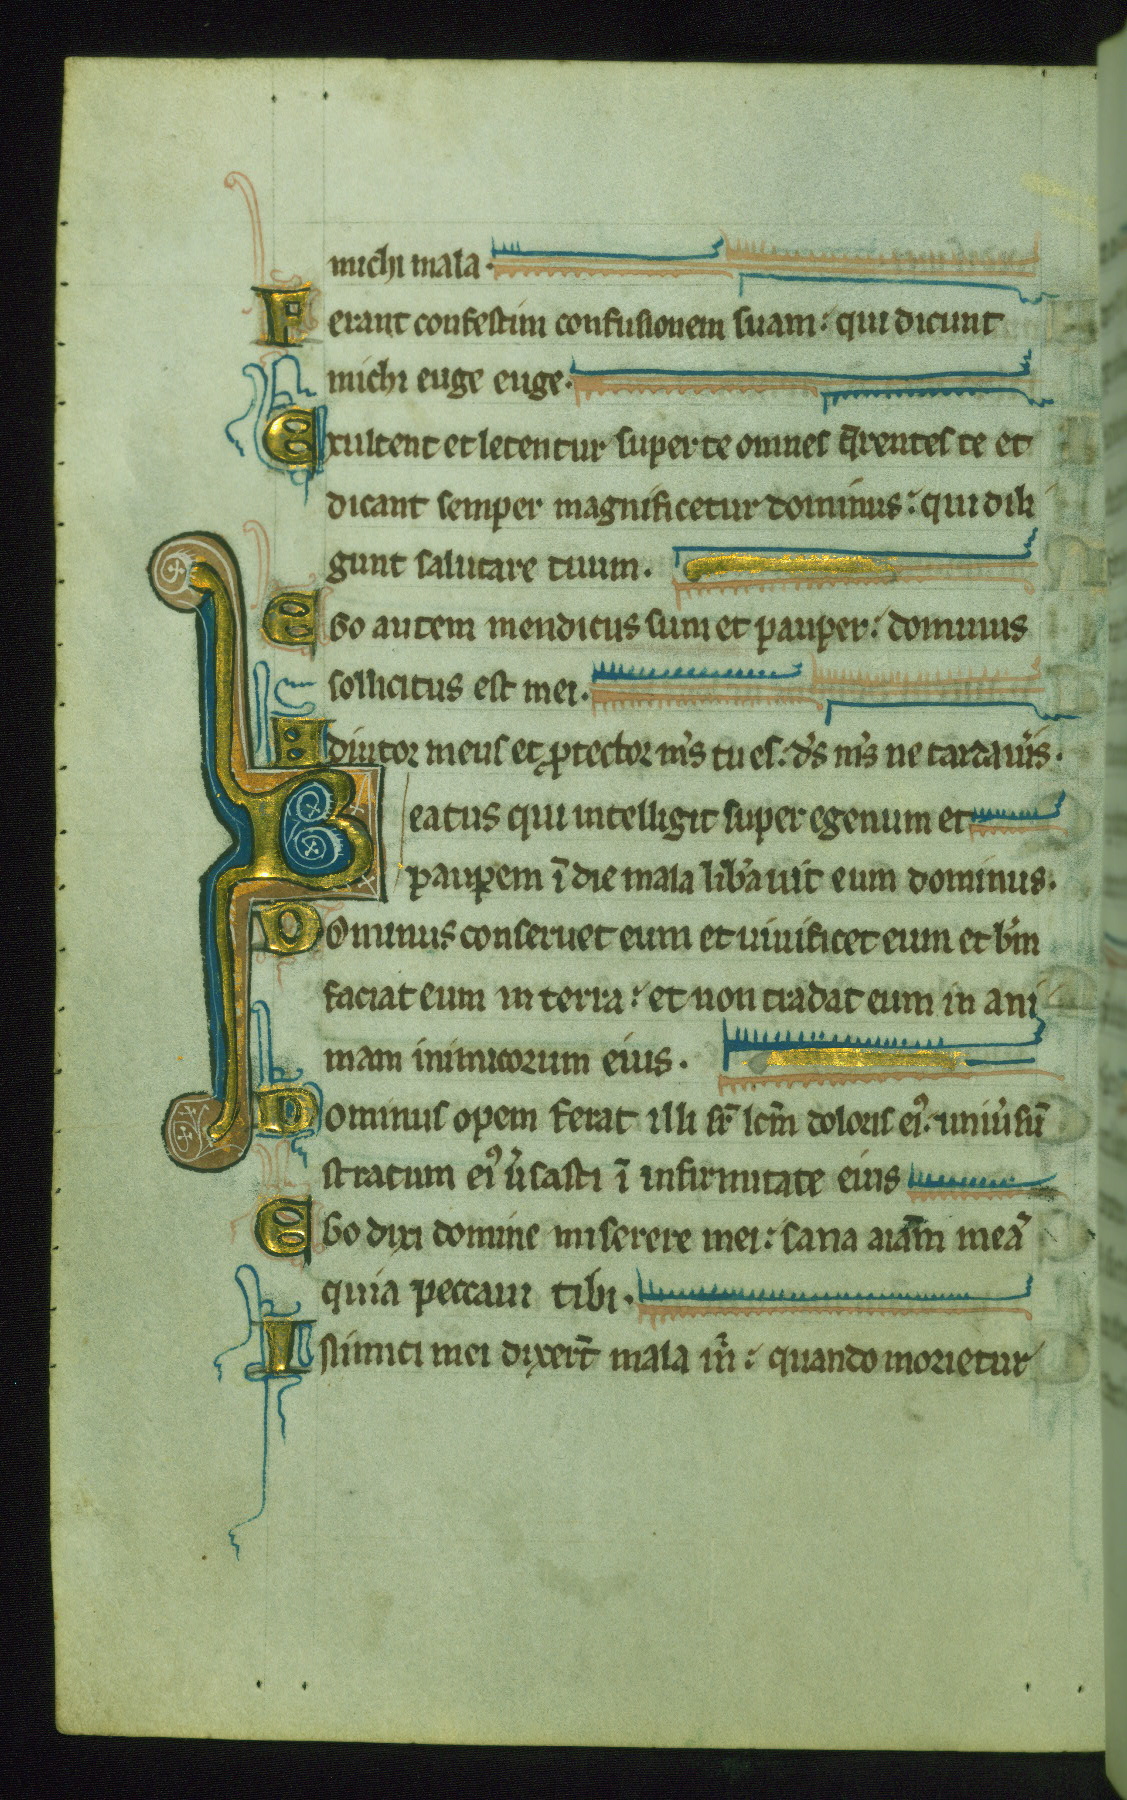 michi mala.
Ferant confestim confusionem suam: qui dicunt
michi euge euge.
Exultent et letentur super te omnes q̄rentes te et
dicant semper magnificetur dominus: qui dili
gunt salutare tuum.
Ego autem mendicus sum et pauper: dominus
sollicitus est mei.
Adiutor meus et ꝓtector m̄s tu es: d̄s m̄s ne tardau̾is.
Beatus qui intelligit super egenum et
pauꝑem ī die mala lib̾auit eum dominus.
Dominus conseruet eum et uiuificet eum et b̄m
faciat eum in terra: et non tradat eum in ani
mam inimicorum eius.
Dominus opem ferat illi sr̄ lcm̄ doloris ei᾽: uniu̾sū
stratum ei᾽ u̾sasti ī infirmitate eius
Ego dixi domine miserere mei: sana aīam meā
quia peccaui tibi.
Inimici mei dixert̄ mala m̄: quando morietur